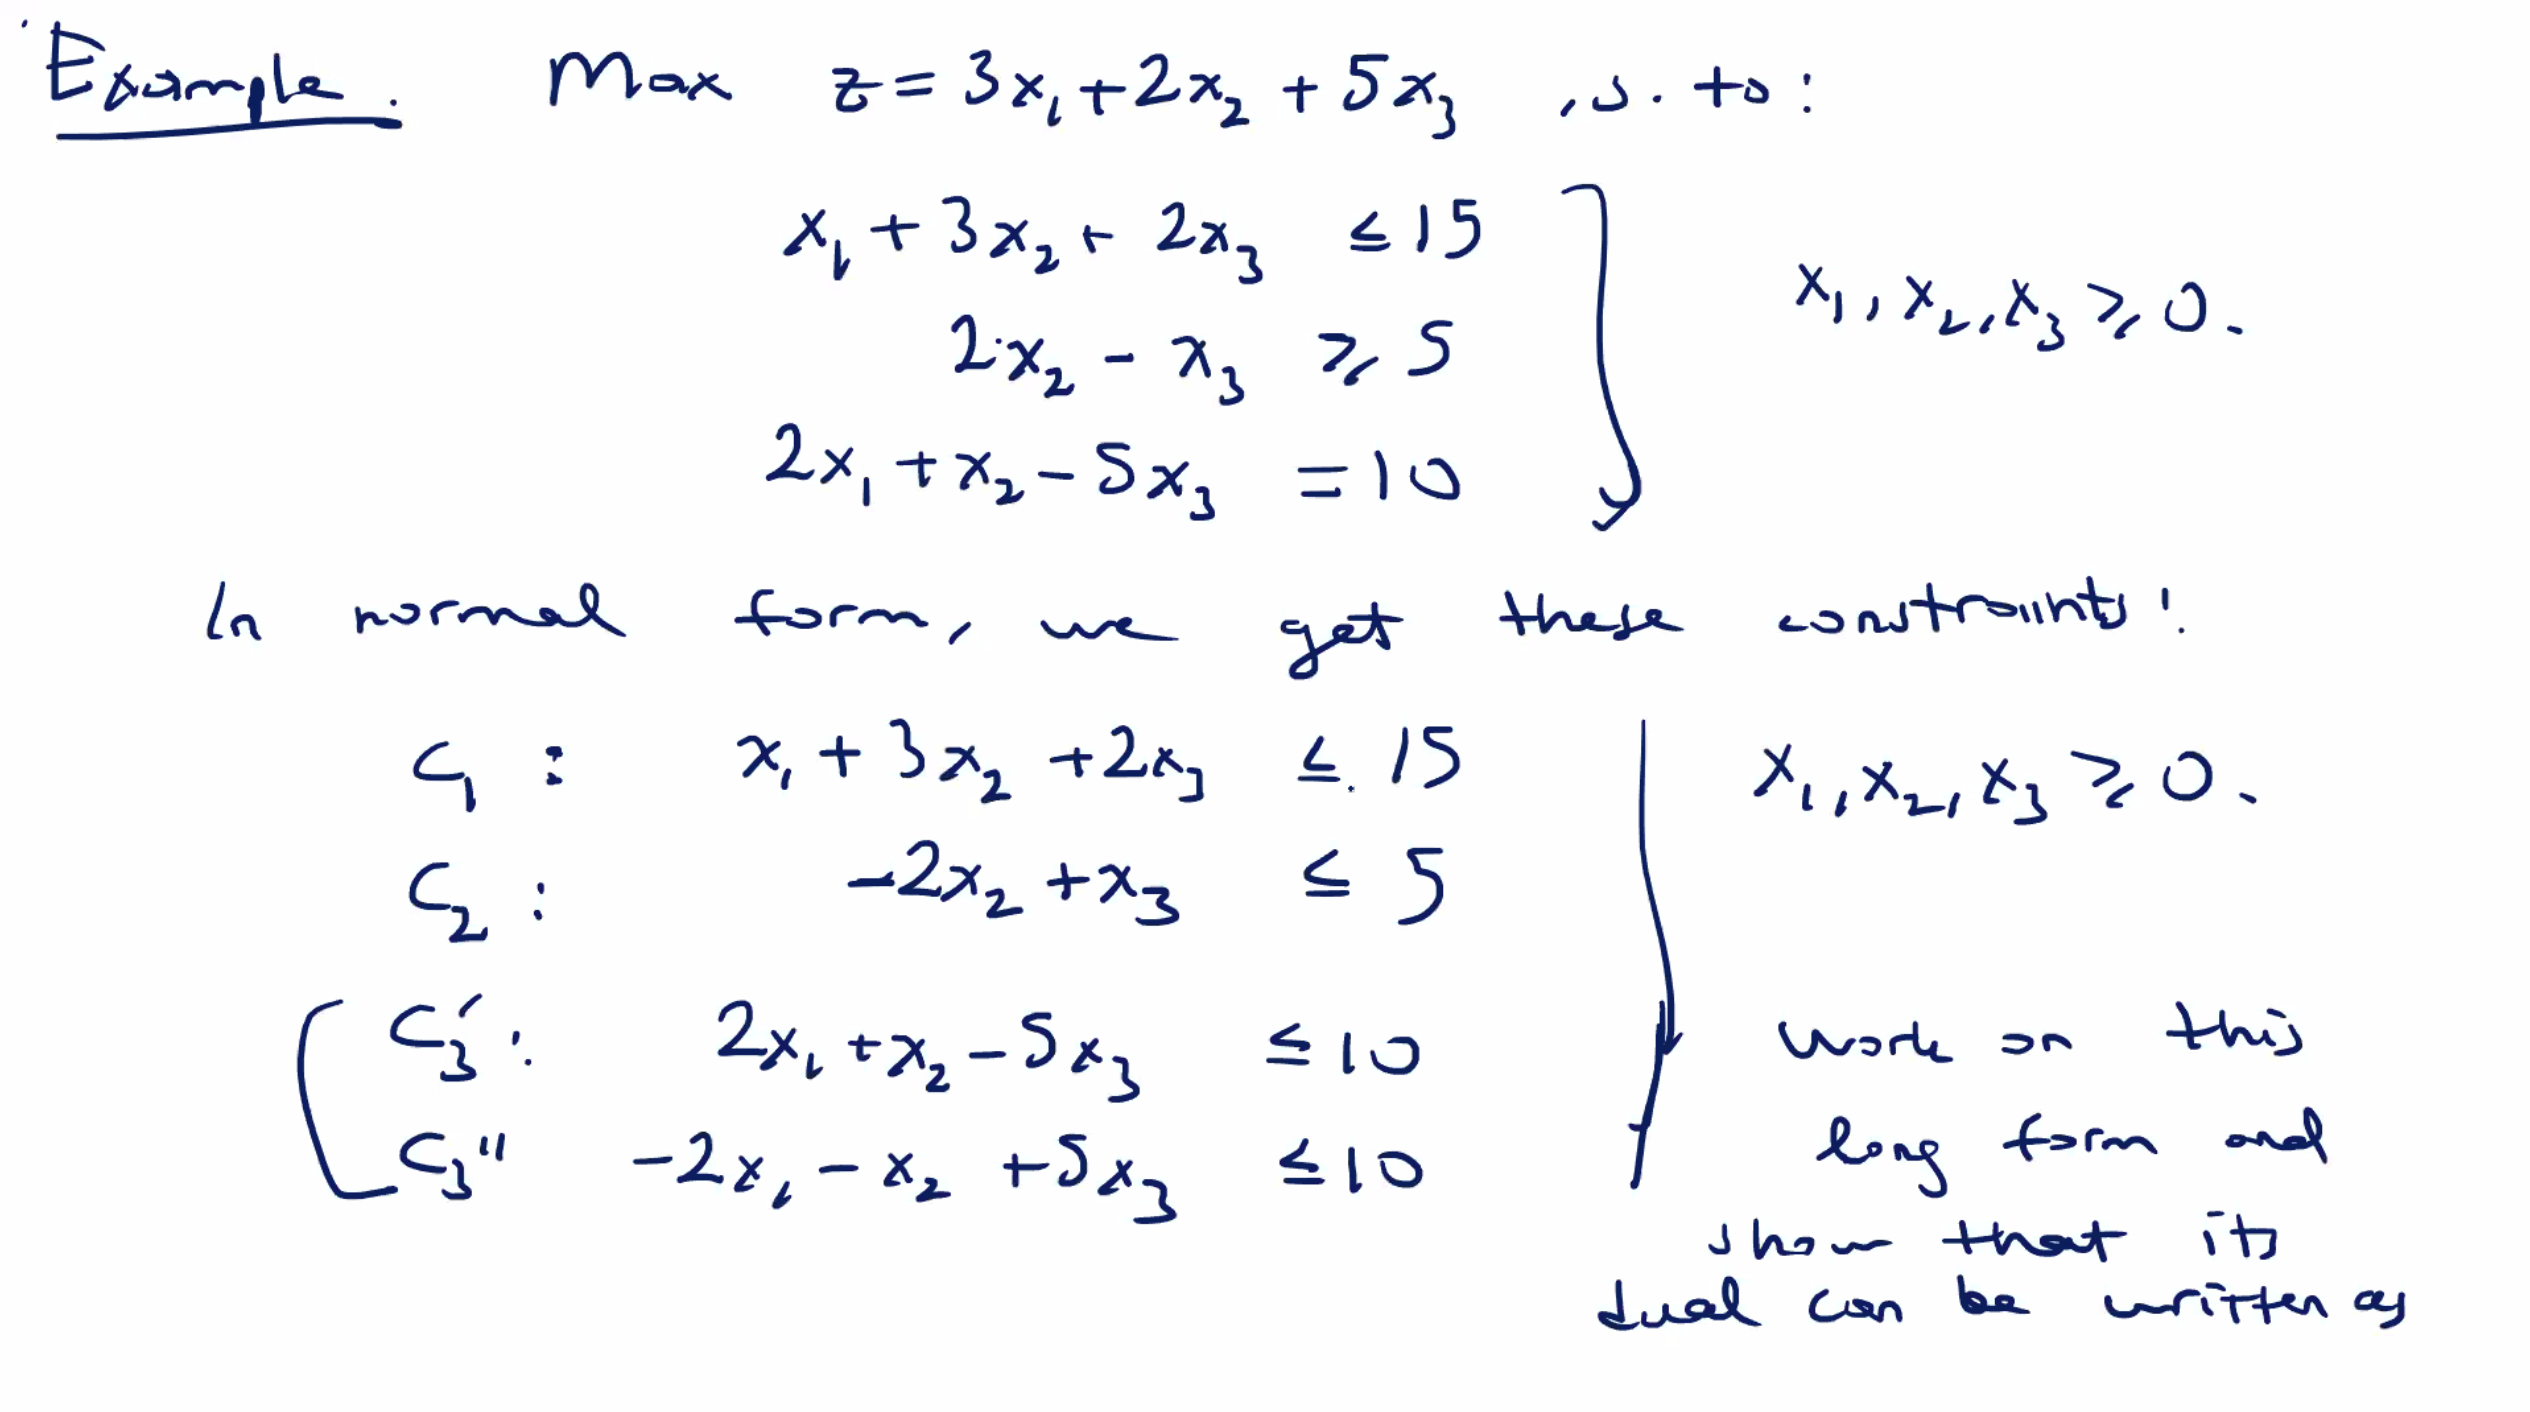 Example. Max z = 3x₁ + 2x₂ + 5x₃ , s. to:
x₁ + 3x₂ + 2x₃ ≤ 15
x₁, x₂, x₃ ⩾ 0.
2x₂ - x₃ ⩾ 5
2x₁ + x₂ - 5x₃ = 10
In normal form, we get these constraints:
C₁ : x₁ + 3x₂ + 2x₃ ≤ 15
x₁, x₂, x₃ ⩾ 0.
C₂ : -2x₂ + x₃ ≤ 5
C₃' : 2x₁ + x₂ - 5x₃ ≤ 10
C₃'' -2x₁ - x₂ + 5x₃ ≤ 10
Work on this
long form and
show that its
dual can be written as